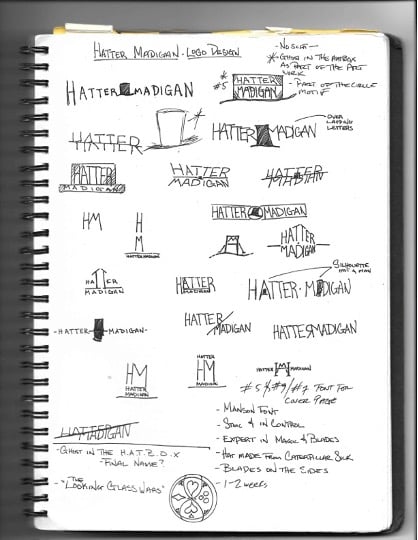 HATTER MADIGAN · LOGO DESIGN
HATTER MADIGAN
#5
HATTER
MADIGAN
- NO SUIT -
* GHOST IN THE HATBOX
AS PART OF THE ART
WORK
- PART OF THE CIRCLE
MOTIF
HATTER
HATTER MADIGAN
OVER
LAPPING
LETTERS
HATTER
MADIGAN
HATTER
MADIGAN
HATTER
MADIGAN
HM
H
M
HATTER MADIGAN
HATTER MADIGAN
HATTER
MADIGAN
HATTER
MADIGAN
HATTER
MADIGAN
HATTER · MADIGAN
SILHOUETTE
HAT & MAN
- HATTER MADIGAN -
HATTER
MADIGAN
HATTERMADIGAN
HM
HATTER
MADIGAN
HATTER
HM
MADIGAN
HATTER HM MADIGAN
#5 FONT FOR
COVER PAGE
HATTADIGAN
- GHOST IN THE H.A.T.B.O.X
- FINAL NAME?
- "THE LOOKING GLASS WARS"
- MANSON FONT
- STOIC & IN CONTROL
- EXPERT IN MAGIC & BLADES
- HAT MADE FROM CATERPILLAR SILK
- BLADES ON THE SIDES
- 1-2 WEEKS